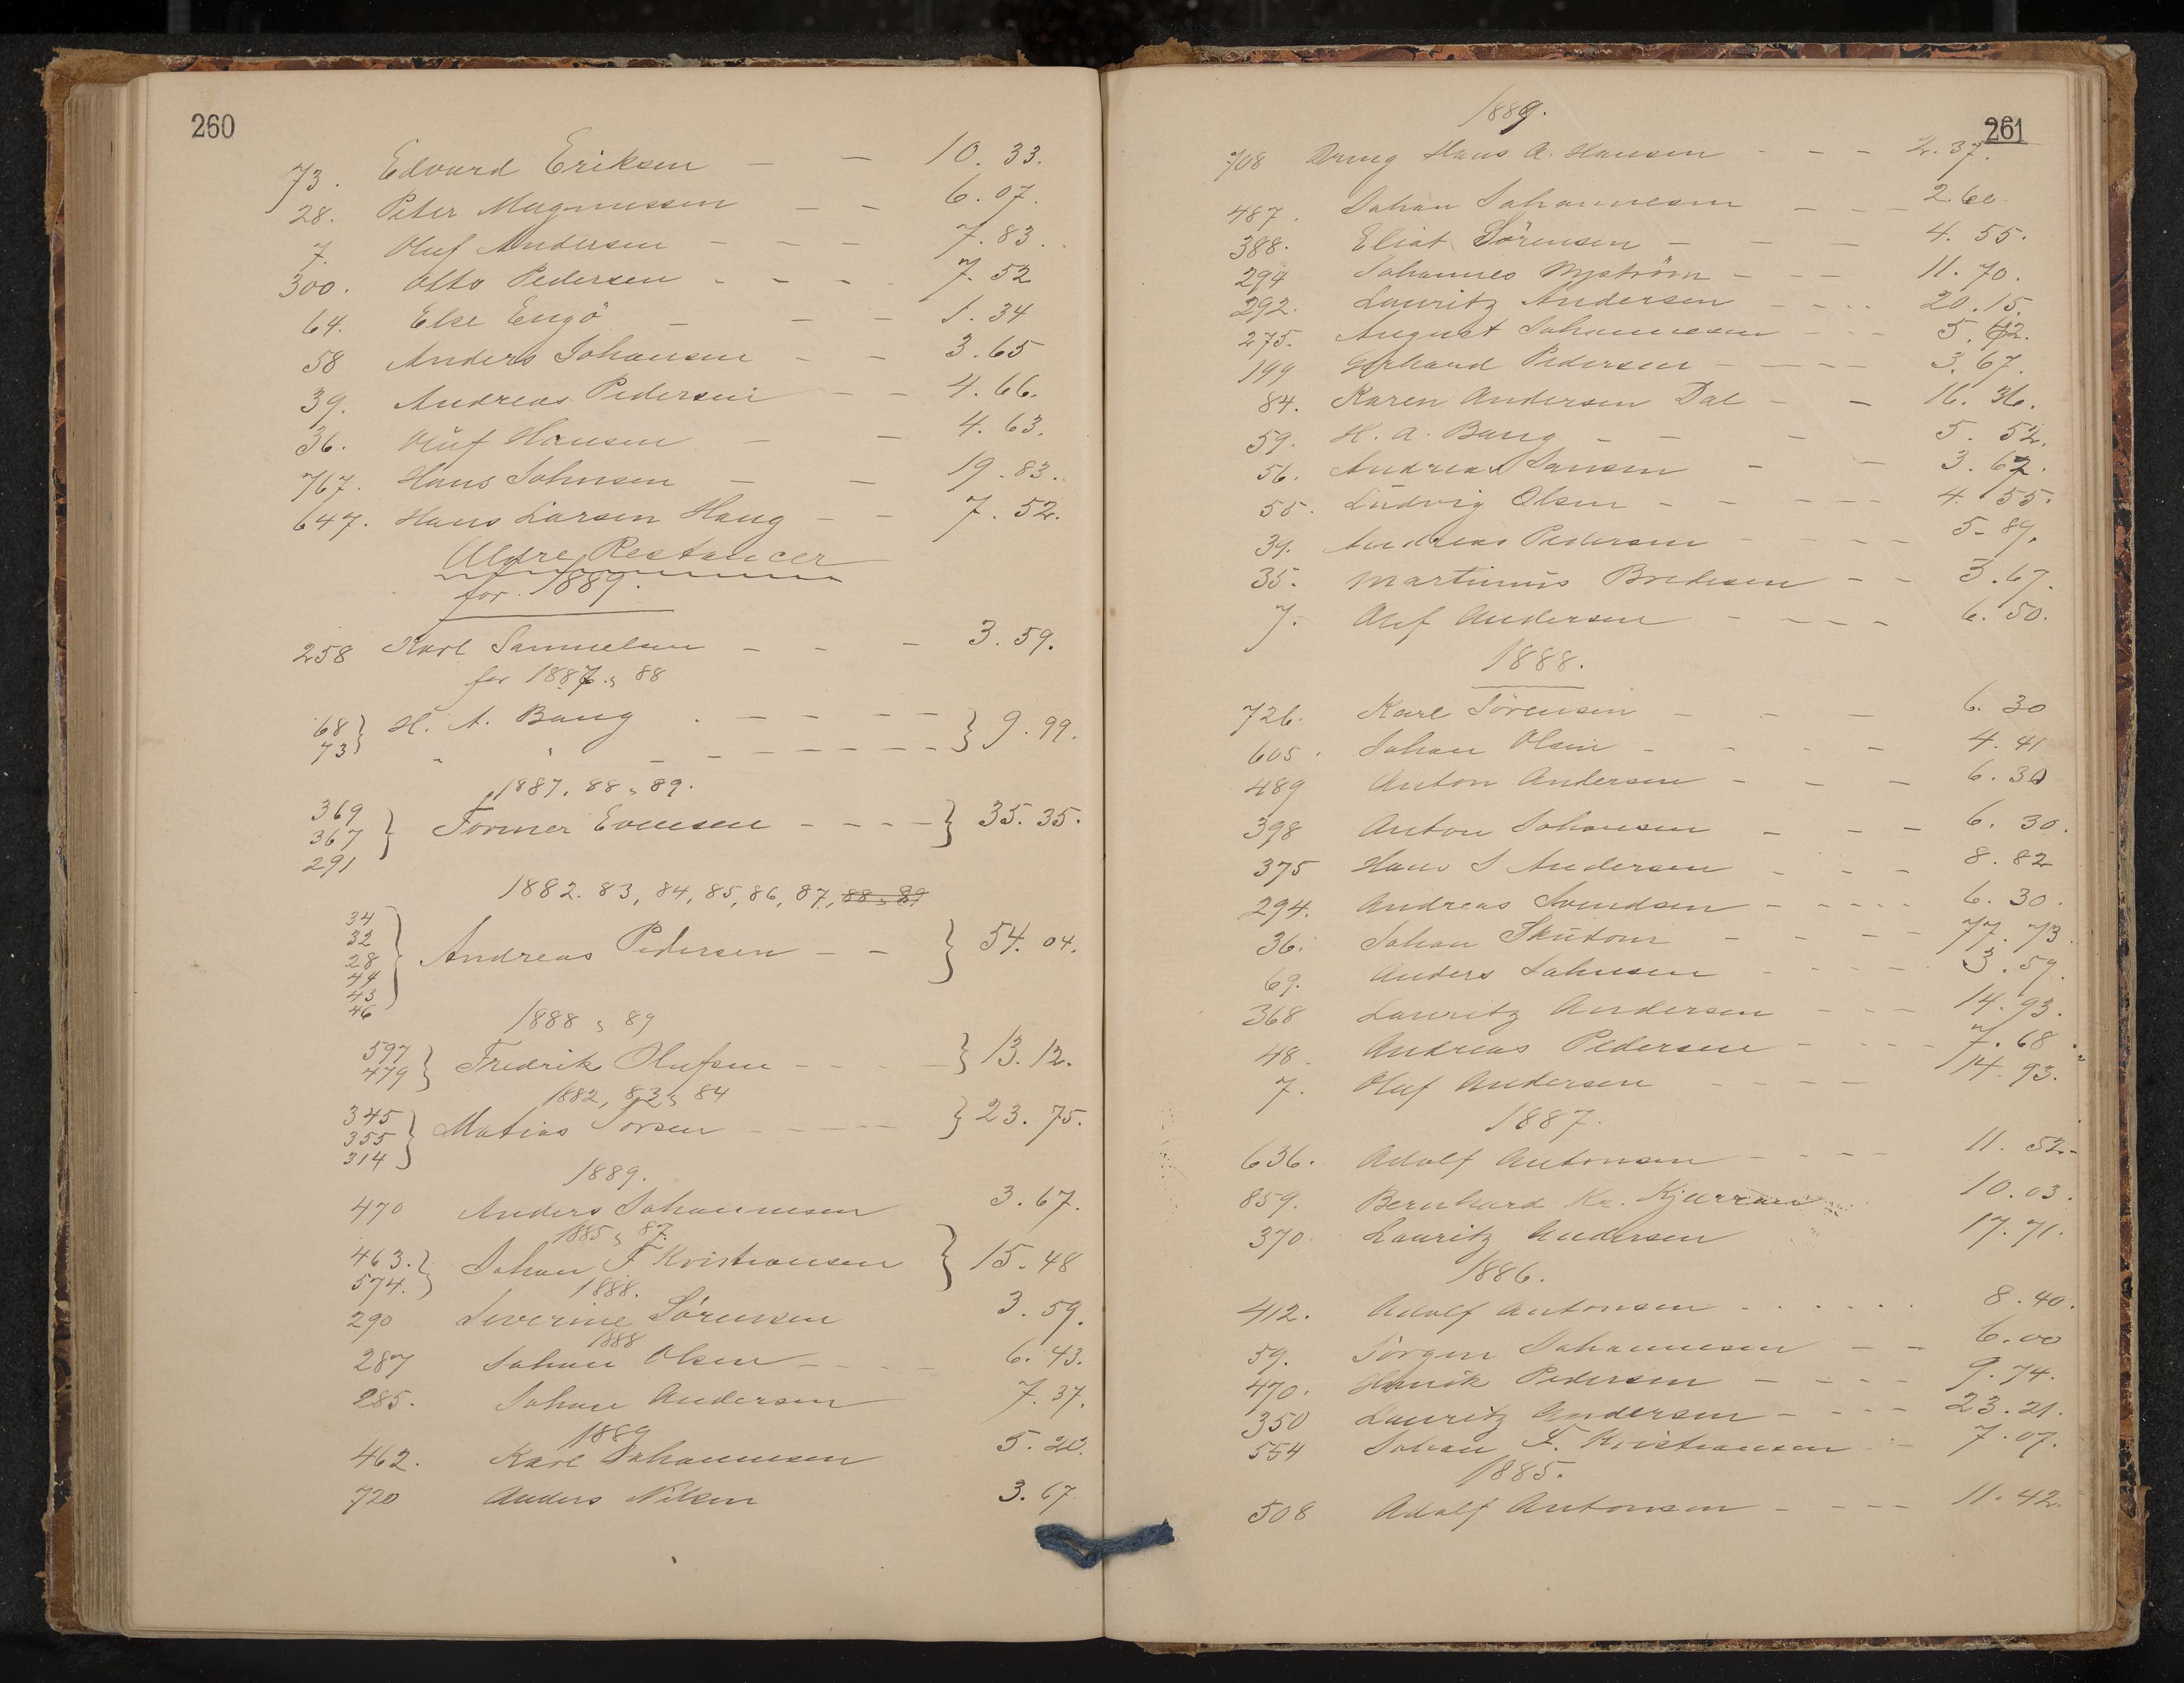 260
73. Edvard Eriksen — — 10. 33.
28. Peter Magnussen — — 6. 07.
7. Oluf Andersen — — — 7. 83.
300. Otto Pedersen - - - 7. 52
64. Else Engö — — — 1. 34
58 Anders Johansen — — 3. 65
39. Andreas Pedersen — — 4. 66.
36. Oluf Hansen — — 4. 63.
767. Hans Johnsen — — 19. 83.
647. Hans Larsen Haug — — 7. 52.
Ældre Restancer
for 1889.
258 Karl Samuelsen — - — 3. 59.
for 1887 & 88
68 } H. A. Bang - — — — — } 9. 99.
73 } " " — — — — — —
1887, 88 & 89.
369
367 } Evensen — — — — } 35. 35.
291
1882. 83, 84, 85, 86, 87, 88 & 89
34
32
28 } Andreas Pedersen — — } 54. 04.
44
43
46
1888 & 89
597 } Fredrik Olufsen — — — — } 13. 12.
479
1882, 83 & 84
345
355 } Matias — — — — } 23. 75.
314
1889.
470 Anders Johannesen 3. 67.
1885 & 87.
463. } Johan F Kristiansen } 15. 48
574.
1888.
290 Severine Sörensen 3. 59.
1888
287 Johan Olsen — — — — 6. 43.
285. Johan Andersen 7. 37.
1889
462. Karl Johannesen 5. 20.
720 Anders Nilsen 3. 67
261
1889.
708 Hans A. Hansen - - - - 2. 37.
487. Johan Johannesen — — — 2 60
388. Eliat Sörensen — — — 4. 55.
294 Johannes Nyström — — — 11. 70.
292. Lauritz Andersen — — — 20. 15.
275. August Johannesen - - - 5. 62.
199 Pedersen — — — — 3. 67.
84. Karen Andersen Dal — — 16. 36.
59. H. A. Bang — — — 5. 52.
56. Andreas Jansen — — 3. 62.
50. Ludvig Olsen — — — — 4. 55.
39. Andreas Pedersen — — — — 5- 89.
35. Martinius Bredesen — — 3. 67.
7. Oluf Andersen — — — — 6. 50.
1888.
726. Karl Sörensen — — — 6. 30
605. Johan Olsen — — — — 4. 41
489 Anton Andersen — — — 6. 30
398 Anton Johansen — — — 6. 30.
375 Hans J Andersen — — — 8. 82
294. Andreas Svendsen — — — — 6. 30.
36. Johan — — — — 77. 73
69. Anders Johnsen - - - - 3. 59.
368 Lauritz Andersen - - - 14. 93.
48. Andreas Pedersen - - - - 7. 68.
7. Oluf Andersen — — — — 14. 93.
1887.
636. Adolf Antonsen — — — — 11. 52-
859. Bernhard Kr. 10. 03.
370. Lauritz Andersen 17. 71.
1886.
412. Adolf Antonsen - - - - - 8. 40.
59. Jörgen Johannesen — — 6. 00
470. Henrik Pedersen — — — — 9. 74.
350 Lauritz Andersen — — — — 23. 21.
554 Johan F. Kristiansen — — 7. 07.
1885.
508 Adolf Antonsen — — — — 11. 42.